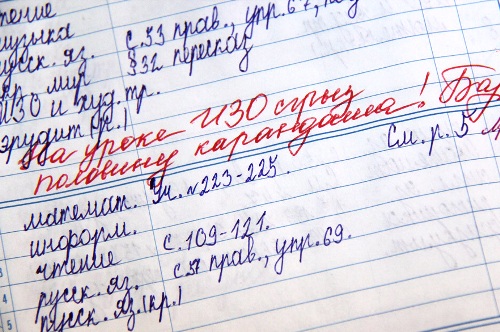 чтение
музыка
русск. яз. с.33 прав., упр.67,
окр. мир §32 пересказ
ИЗО и худ. тр.
эрудит (кр.)
На уроке ИЗО сгрыз
половину карандаша! Бар
См. р. 5
математ. Уч. №223-225.
информ.
чтение с.109-121.
русск. яз. с 37 прав., упр. 69.
русск. яз. (кр.)
3
4
5